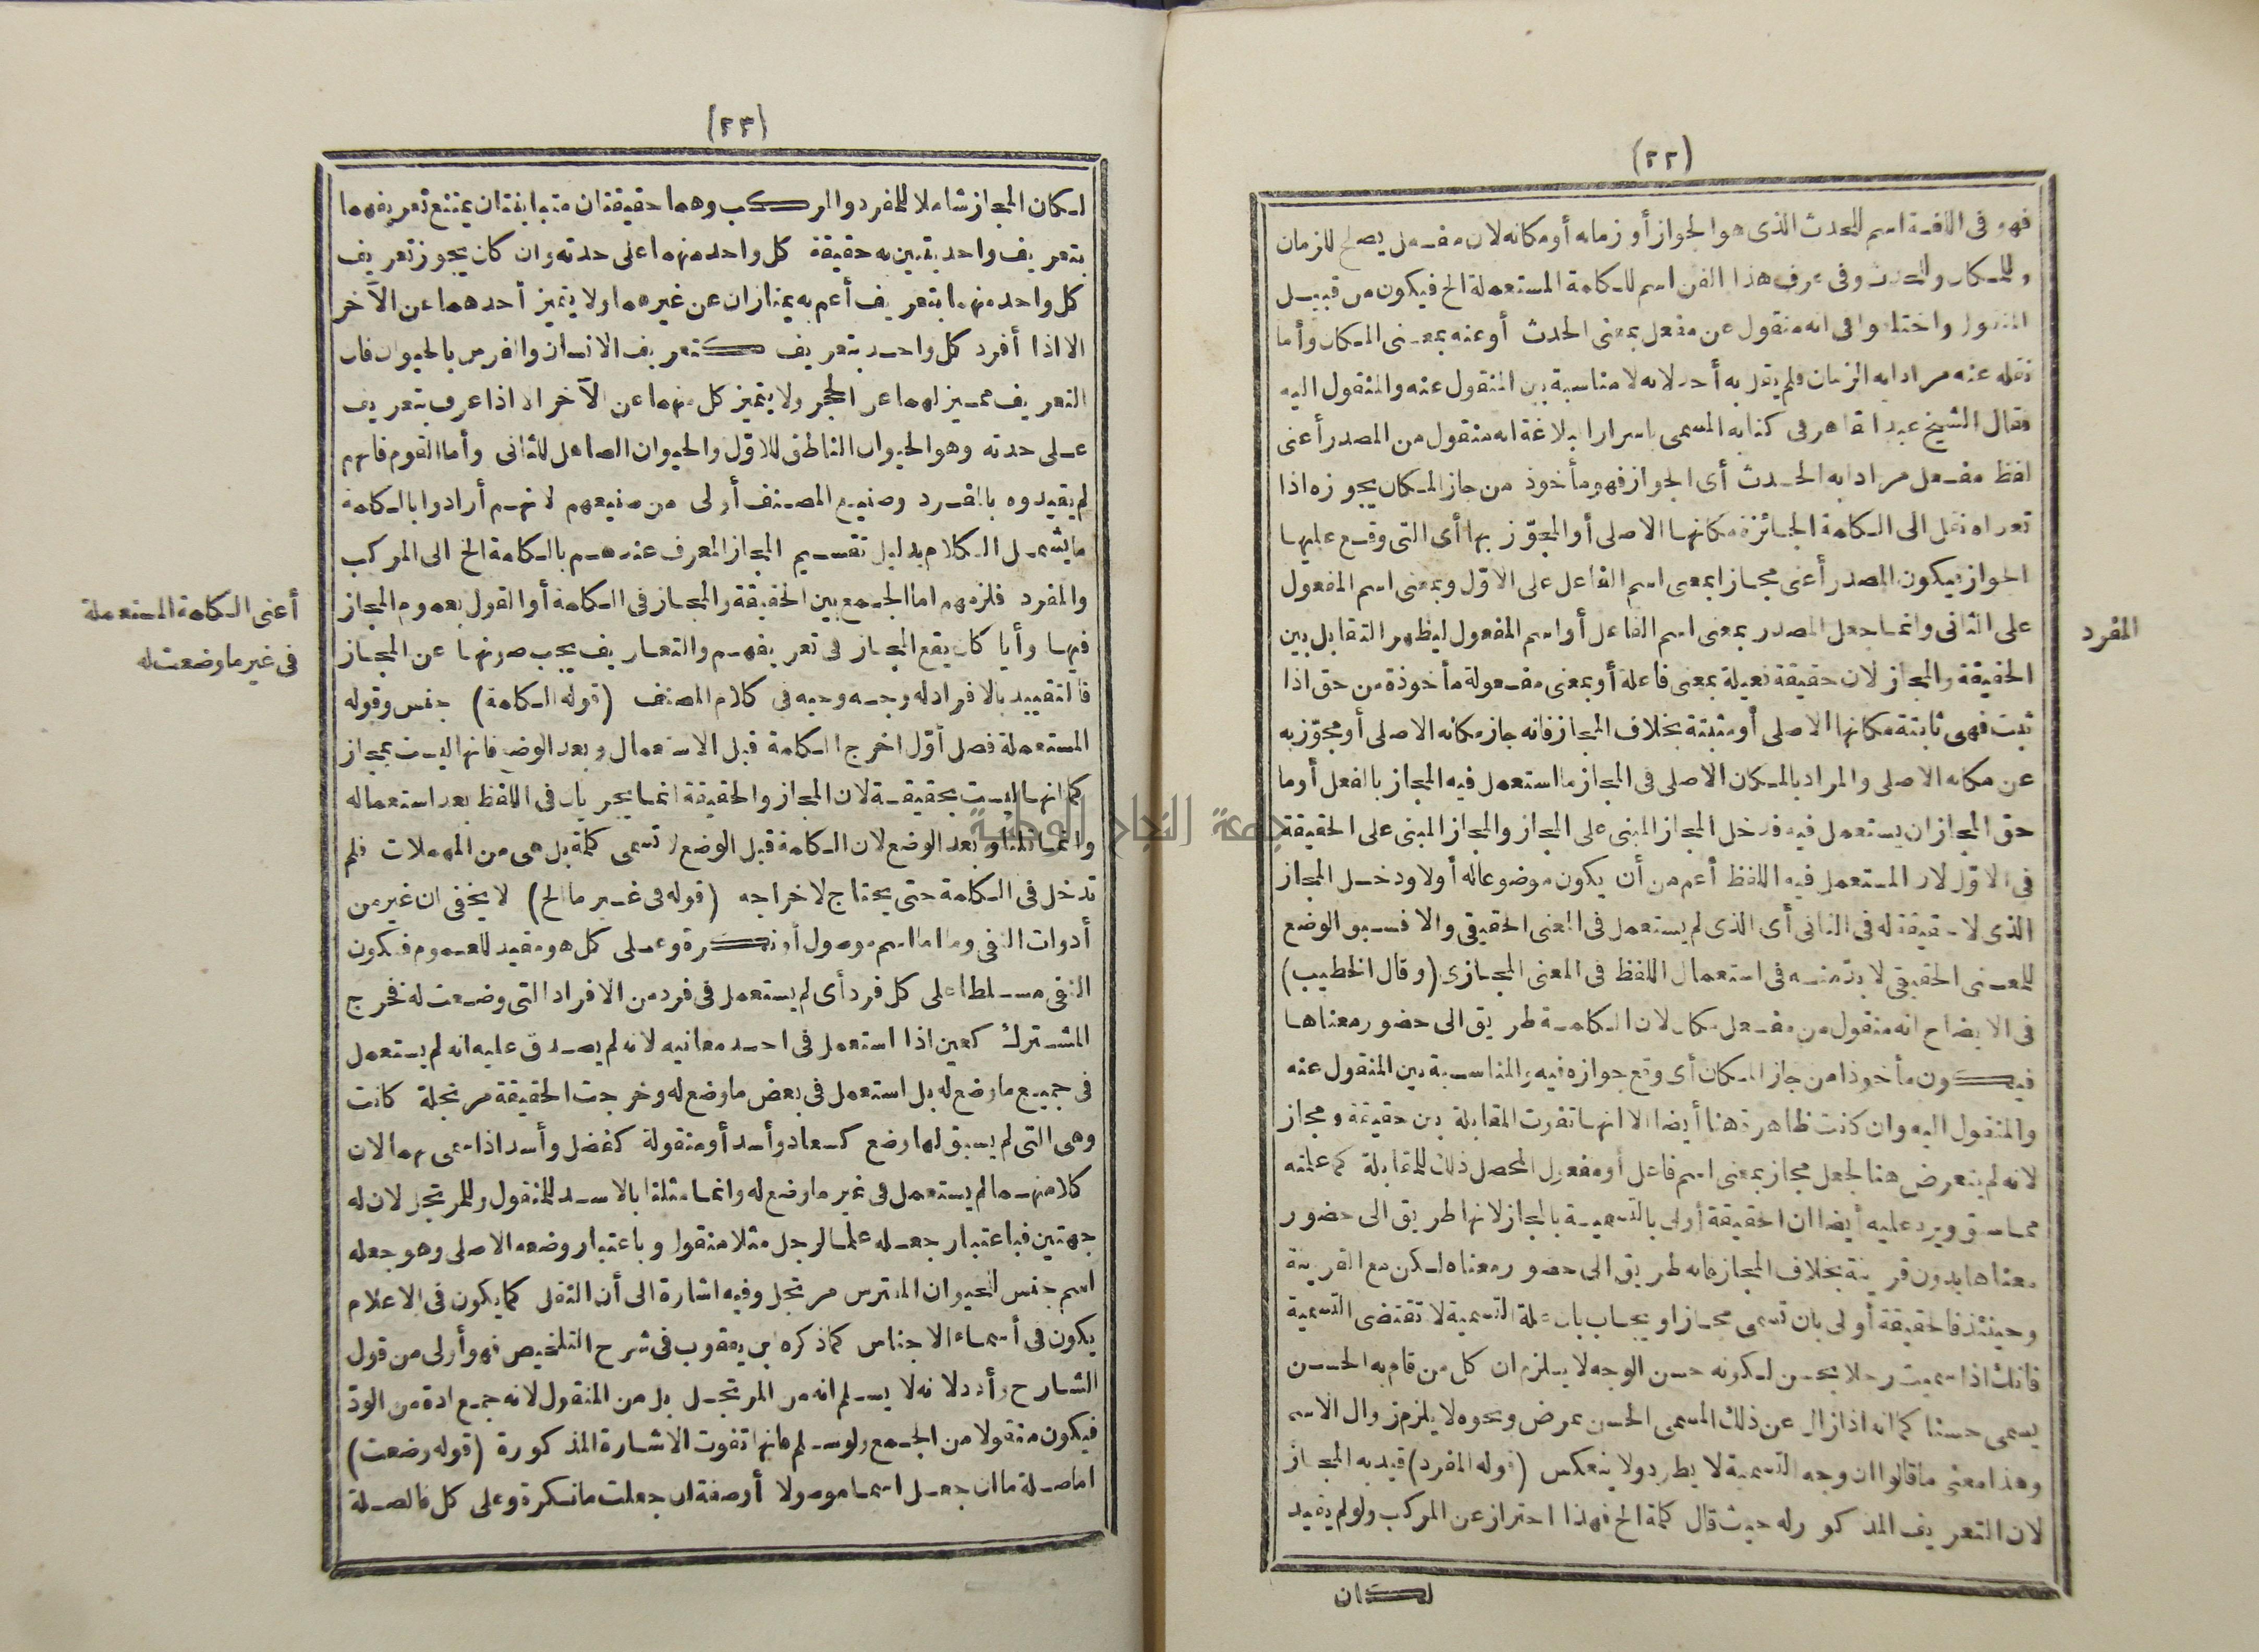 (٢٢)
فهو فى اللغة اسم للحدث الذى هو الجواز أو زمانه أو مكانه لان مفعل يصلح للزمان
وللمكان والحدث وفى عرف هذا الفن اسم للكامة المستعملة الخ فيكون من قبيل
المنقول واختلفوا فى انه منقول عن مفعل بمعنى الحدث أو عنه بمعنى المكان وأما
نقله عنه مرادا به الزمان فلم يقل به أحد لانه لا مناسبة بين المنقول عنه والمنقول اليه
فقال الشيخ عبد القاهر فى كتابه المسمى باسرار البلاغة انه منقول من المصدر أعنى
لفظ مفعل مرادا به الحدث أى الجواز فهو مأخوذ من جاز المكان يجوزه اذا
تعداه نقل الى الكلمة الجائزة مكانها الاصلى أو المجوّز بها أى التى وقع عليها
الجواز فيكون المصدر أعنى مجازا بمعنى اسم الفاعل على الاوّل وبمعنى اسم المفعول
على الثانى وانما جعل المصدر بمعنى اسم الفاعل أو اسم المفعول ليظهر التقابل بين
الحقيقة والمجاز لان حقيقة فعيلة بمعنى فاعلة أو بمعنى مفعولة مأخوذة من حق اذا
ثبت فهى ثابتة مكانها الاصلى أو مثبتة بخلاف المجاز فانه جاز مكانه الاصلى أو مجوّز به
عن مكانه الاصلى والمراد بالمكان الاصلى فى المجاز ما استعمل فيه المجاز بالفعل أو ما
حق المجاز ان يستعمل فيه فدخل المجاز المبنى على المجاز والمجاز المبنى على الحقيقة
فى الاوّل لان المستعمل فيه اللفظ أعم من أن يكون موضوعا له أولا ودخل المجاز
الذى لا حقيقة له فى الثانى أى الذى لم يستعمل فى المعنى الحقيقى والا فسبق الوضع
للمعنى الحقيقى لا بدّ منه فى استعمال اللفظ فى المعنى المجازى (وقال الخطيب)
فى الايضاح انه منقول من مفعل مكان لان الكلمة طريق الى حضور معناها
فيكون مأخوذا من جاز المكان أى وقع جوازه فيه والمناسبة بين المنقول عنه
والمنقول اليه وان كانت ظاهرة هنا أيضا الا انها تفوت المقابلة بين حقيقة ومجاز
لانه لم يتعرض هنا لجعل مجاز بمعنى اسم فاعل أو مفعول المحصل ذلك للمقابلة كما علمته
مما سبق ويرد عليه أيضا ان الحقيقة أولى بالتسمية بالمجاز لانها طريق الى حضور
معناها بدون قرينة بخلاف المجاز فانه طريق الى حضور معناه لكن مع القرينة
وحينئذ فالحقيقة أولى بان تسمى مجازا ويجاب بان علة التسمية لا تقتضى التسمية
فانك اذا سميت رجلا بحسن لكونه حسن الوجه لا يلزم ان كل من قام به الحسن
يسمى حسنا كما انه اذا زال عن ذلك المسمى الحسن بمرض ونحوه لا يلزم زوال الاسم
وهذا معنى ما قالوا ان وجه التسمية لا يطرد ولا ينعكس (قوله المفرد) قيد به المجاز
لان التعريف المذكور له حيث قال كلمة الخ فهذا احتراز عن المركب ولو لم يقيد
لكان
المفرد
(٢٣)
لكان المجاز شاملا للمفرد والمركب وهما حقيقتان متباينتان يمتنع تعريفهما
بتعريف واحد يتبين به حقيقة كل واحد منهما على حدته وان كان يجوز تعريف
كل واحد منهما بتعريف أعم به يمتازان عن غيرهما ولا يتميز أحدهما عن الآخر
الا اذا أفرد كل واحد بتعريف كتعريف الانسان والفرس بالحيوان فان
التعريف مميز لهما عن الحجر ولا يتميز كل منهما عن الآخر الا اذا عرف بتعريف
على حدته وهو الحيوان الناطق للاوّل والحيوان الصاهل للثانى وأما القوم فانهم
لم يقيدوه بالمفرد وصنيع المصنف أولى من صنيعهم لانهم أرادوا بالكلمة
ما يشمل الكلام بدليل تقسيم المجاز المعرف عندهم بالكلمة الخ الى المركب
والمفرد فلزمهم اما الجمع بين الحقيقة والمجاز فى الكلمة أو القول بعموم المجاز
فيها وأيا كان يقع المجاز فى تعريفهم والتعاريف يجب صونها عن المجاز
فالتقييد بالافراد له وجه وجيه فى كلام المصنف (قوله الكلمة) جنس وقوله
المستعملة فصل أوّل اخرج الكلمة قبل الاستعمال وبعد الوضع فانها ليست بمجاز
كما انها ليست بحقيقة لان المجاز والحقيقة انما يجريان فى اللفظ بعد استعماله
وانما قلنا وبعد الوضع لان الكلمة قبل الوضع لا تسمى كلمة بل هى من المهملات فلم
تدخل فى الكلمة حتى يحتاج لاخراجه (قوله فى غير ما الخ) لا يخفى ان غير من
أدوات النفى وما اما اسم موصول أو نكرة وعلى كل هو مفيد للعموم فيكون
النفى مسلطا على كل فرد أى لم يستعمل فى فرد من الافراد التى وضعت له فخرج
المشترك كعين اذا استعمل فى احد معانيه لانه لم يصدق عليه انه لم يستعمل
فى جميع ما وضع له بل استعمل فى بعض ما وضع له وخرجت الحقيقة مرتجلة كانت
وهى التى لم يسبق لها وضع كسعاد وأسد أو منقولة كفضل وأسد اذا سمى بهما لان
كلا منهما لم يستعمل فى غير ما وضع له وانما مثلنا بالاسد للمنقول وللمرتجل لان له
جهتين فباعتبار جعله علما لرجل مثلا منقول وباعتبار وضعه الاصلى وهو جعله
اسم جنس للحيوان المفترس مرتجل وفيه اشارة الى أن النقل كما يكون فى الاعلام
يكون فى أسماء الاجناس كما ذكره ابن يعقوب فى شرح التلخيص فهو أولى من قول
الشارح وأدد لانه لا يسلم انه من المرتجل بل من المنقول لانه جمع ادة من الودّ
فيكون منقولا من الجمع ولو سلم فانها تفوت الاشارة المذكورة (قوله وضعت)
اما صلة ما ان جعل اسما موصولا أو صفة ان جعلت ما نكرة وعلى كل فالصلة
أعنى الكلمة المستعملة
فى غير ما وضعت له
جامعة النجاح الوطنية